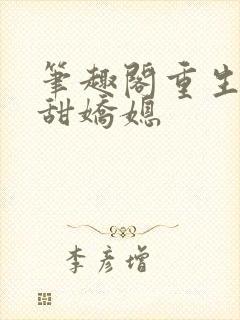 筆趣閣重生
甜嬌媳
李彥增